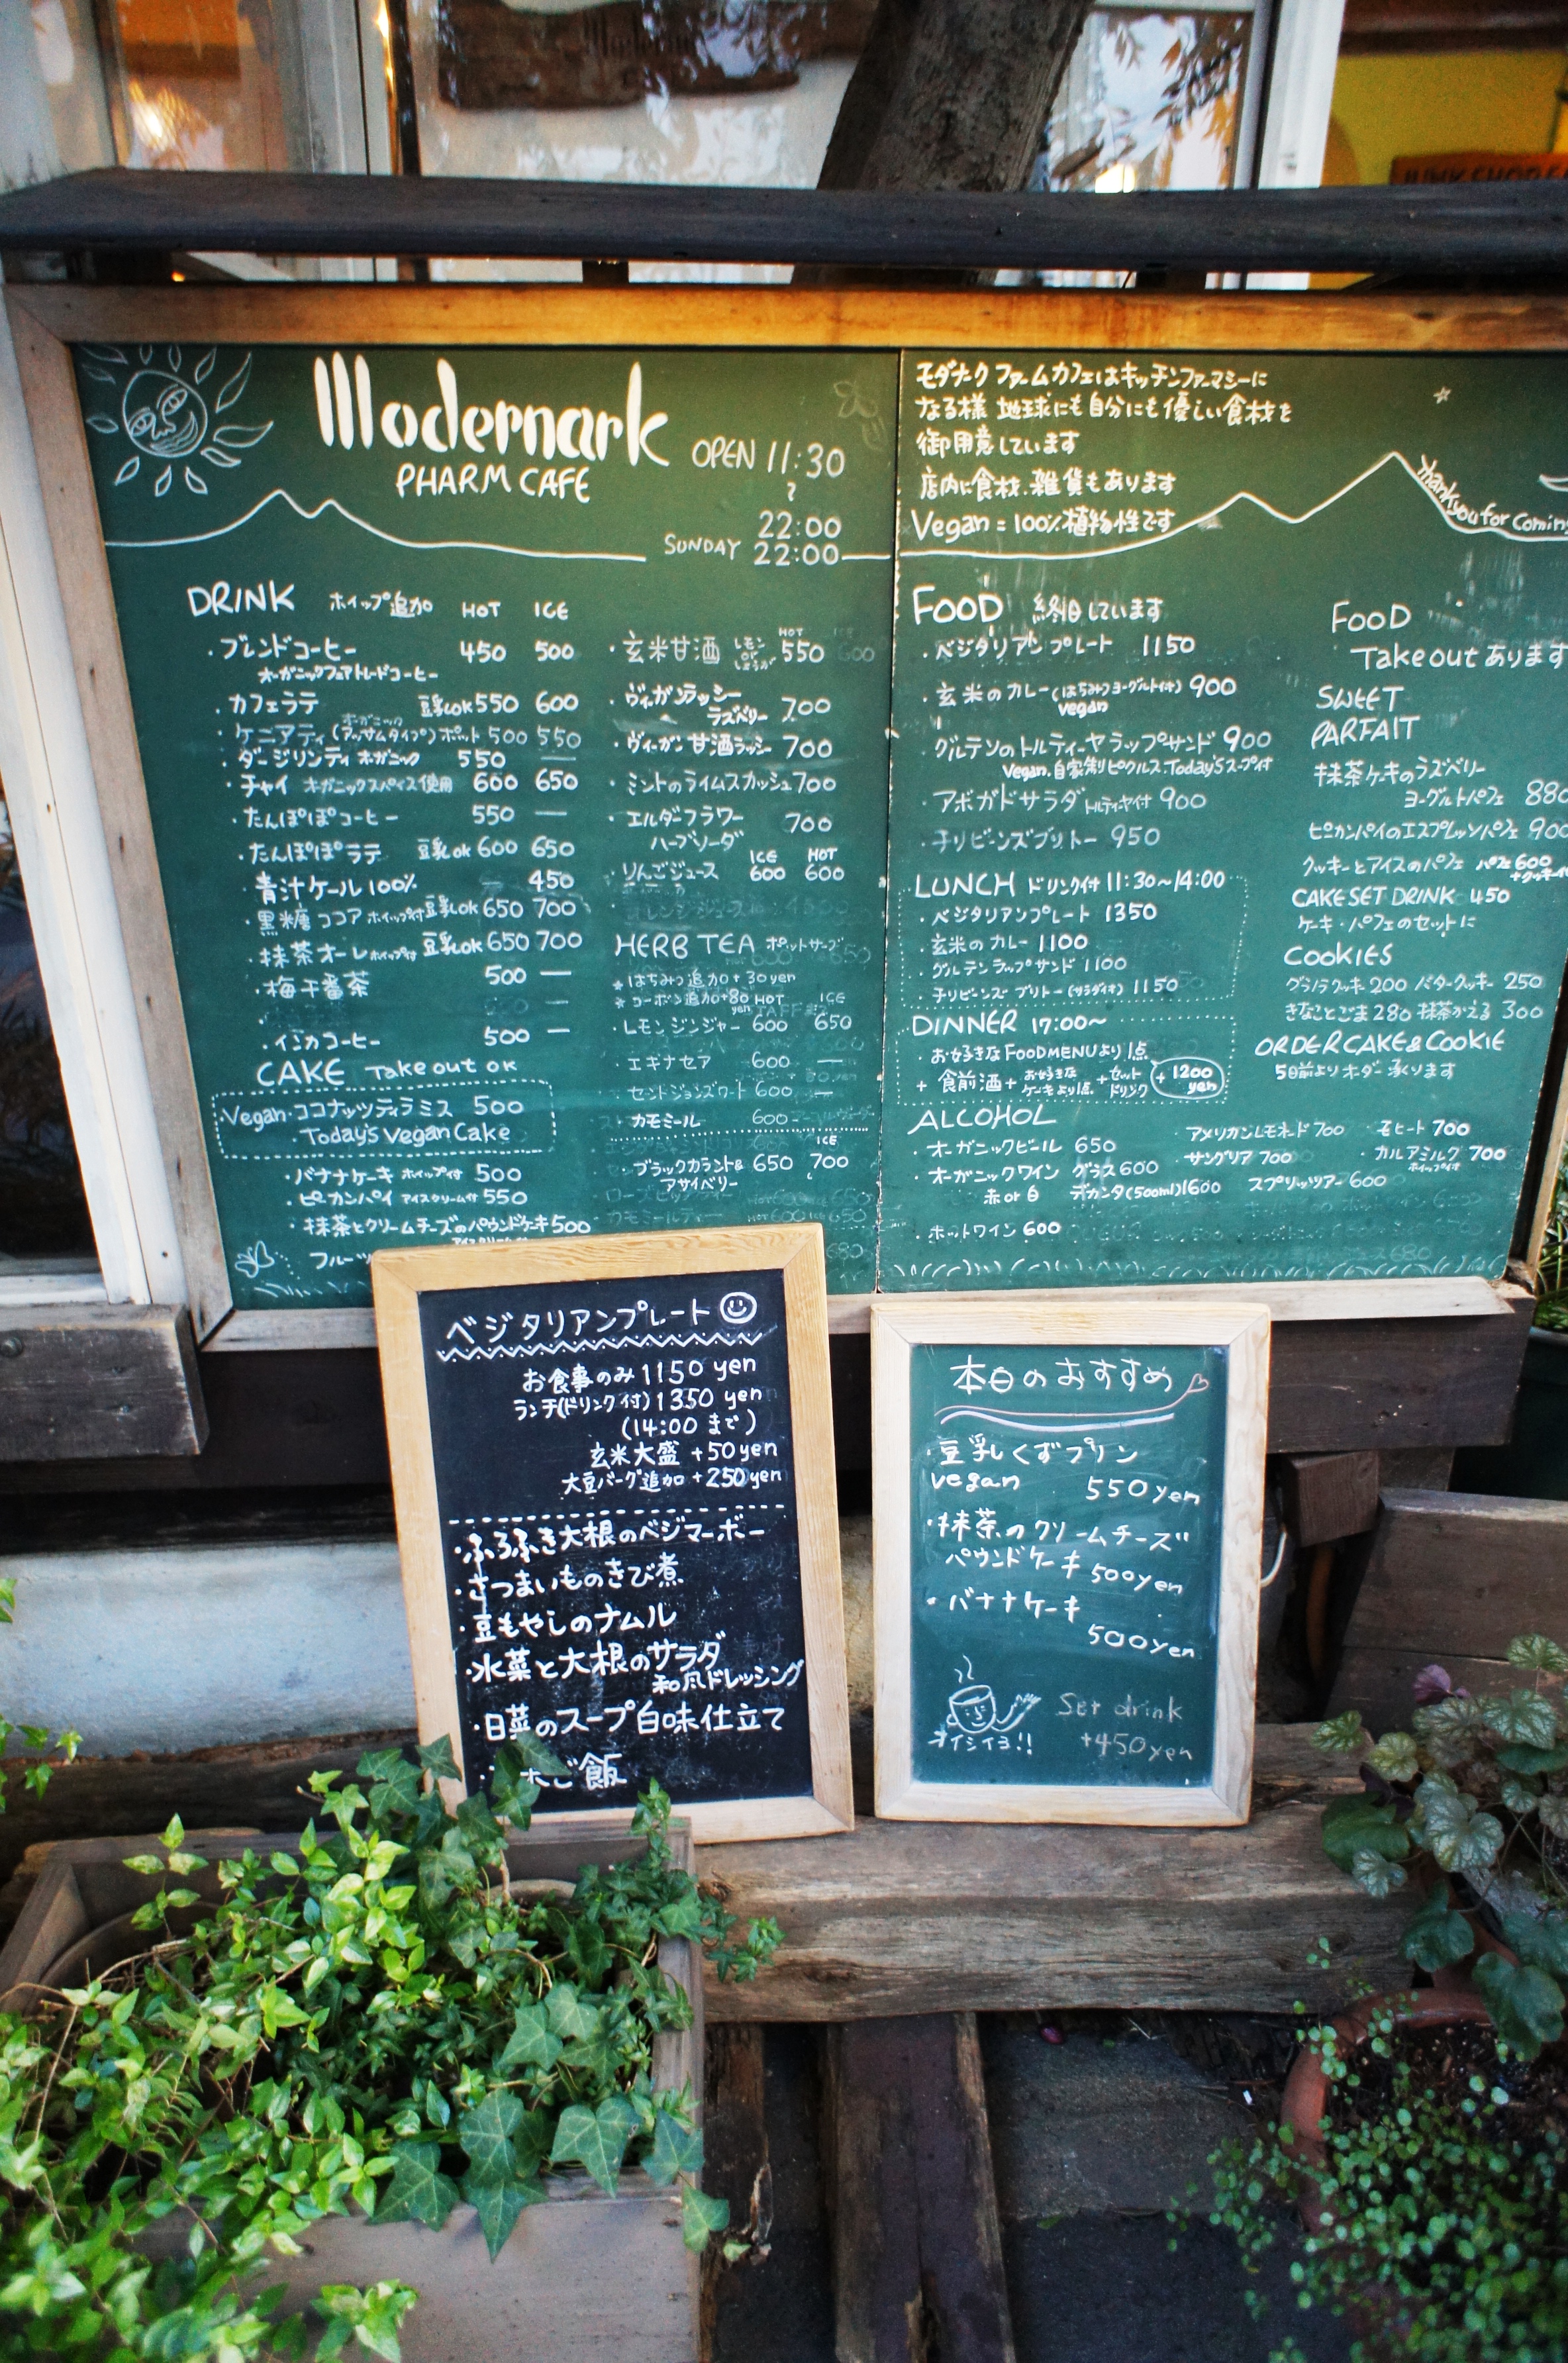 Modernark
PHARM CAFE
OPEN 11:30
22:00
SUNDAY 22:00
DRINK ホイップ追加 HOT ICE
・ブレンドコーヒー 450 500
オーガニックフェアトレードコーヒー
・カフェラテ 豆乳ok 550 600
オーガニック
・ケニアティ(アッサムタイプ)ポット 500 550
・ダージリンティ オーガニック 550 —
・チャイ オーガニックスパイス使用 600 650
・たんぽぽコーヒー 550 —
・たんぽぽラテ 豆乳ok 600 650
・青汁ケール100% 450
・黒糖ココア ホイップ付 豆乳ok 650 700
・抹茶オーレ ホイップ付 豆乳ok 650 700
・梅干番茶 500 —
・インカコーヒー 500 —
CAKE Take out ok
Vegan・ココナッツティラミス 500
・Today's Vegan Cake
・バナナケーキ ホイップ付 500
・ピカンパイ アイスクリーム付 550
・抹茶とクリームチーズのパウンドケーキ 500
フルーツ
HOT
・玄米甘酒 レモン or しょうが 550
・ヴィーガンラッシー
ラズベリー 700
・ヴィーガン甘酒ラッシー 700
・ミントのライムスカッシュ 700
・エルダーフラワー
ハーブソーダ 700
ICE HOT
・りんごジュース 600 600
HERB TEA ポットサーブ
*はちみつ追加+30yen
*コーボン追加+80yen HOT ICE
・レモンジンジャー 600 650
・エキナセア 600 —
・セントジョンズワート 600 —
・カモミール 600
ICE
・ブラックカラント& 650 700
アサイベリー
モダナークファームカフェはキッチンファーマシーに
なる様 地球にも自分にも優しい食材を
御用意しています
店内に食材.雑貨もあります
Vegan=100%植物性です
Thank you for Coming
FOOD 終日しています
・ベジタリアンプレート 1150
・玄米のカレー(はちみつヨーグルト付) 900
vegan
・グルテンのトルティーヤラップサンド 900
Vegan.自家製ピクルス.Today'sスープ付
・アボガドサラダ トルティヤ付 900
・チリビーンズブリトー 950
LUNCH ドリンク付 11:30〜14:00
・ベジタリアンプレート 1350
・玄米のカレー 1100
・グルテンラップサンド 1100
・チリビーンズ ブリトー(サラダ付) 1150
DINNER 17:00〜
・お好きなFOODMENUより1点
+食前酒+お好きなケーキより1点+セットドリンク +1200yen
ALCOHOL
・オーガニックビール 650
・オーガニックワイン グラス600
赤or白 デカンタ(500ml)1600
・ホットワイン 600
・アメリカンレモネード 700
・サングリア 700
スプリッツァー 600
・モヒート 700
・カルアミルク 700
ホイップ付
FOOD
Takeoutあります
SWEET
PARFAIT
抹茶ケーキのラズベリー
ヨーグルトパフェ 880
ピカンパイのエスプレッソパフェ 900
クッキーとアイスのパフェ パフェ600
CAKE SET DRINK 450
ケーキ・パフェのセットに
COOKIES
グラノラクッキー 200 バタークッキー 250
きなことごま 280 抹茶かえる 300
ORDER CAKE & COOKIE
5日前よりオーダー承ります
ベジタリアンプレート
お食事のみ 1150 yen
ランチ(ドリンク付) 1350 yen
(14:00 まで)
玄米大盛 +50yen
大豆バーグ追加 +250yen
・ふろふき大根のベジマーボー
・さつまいものきび煮
・豆もやしのナムル
・水菜と大根のサラダ
和風ドレッシング
・白菜のスープ白味仕立て
ご飯
本日のおすすめ
・豆乳くずプリン
vegan 550yen
・抹茶のクリームチーズ
パウンドケーキ 500yen
・バナナケーキ
500yen
オイシイヨ!!
Set drink
+450yen